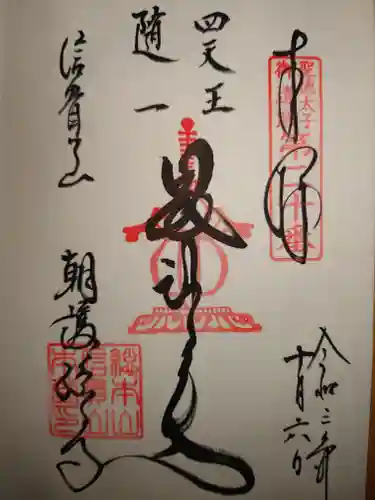 奉拝
聖徳太子
御遺跡
第二十番
四天王
随一
毘沙門天
信貴山
朝護孫子寺
総本山
信貴山
令和二年
十月六日